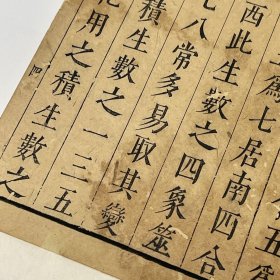 為七居南四合
西此生數之四象筮
七八常多易取其變
積生數之一三五
用之積生數之
四